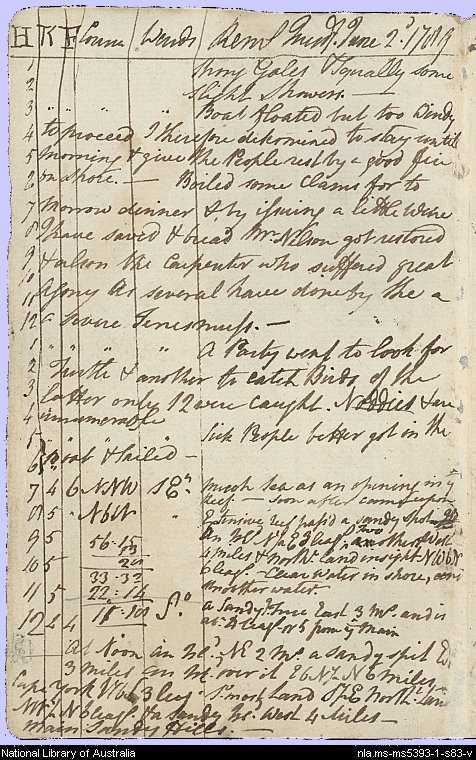 H K F Course Winds Remks Tuesdy. June 2d. 1789
1 Strong Gales & Squally some
2 slight Showers. —
3 " " " " Boat floated but too Windy
4 to proceed Therefore determined to stay until
5 morning & give the People rest by a good fire
6 on shore. — Boiled some Clams for to
7 morrow dinner & by issuing a little Wine
8 I have saved & bread Mr. Nelson got restored
9 & alson the Carpenter who suffered great
10 Agony as several have done by the a
11
12 a severe Tenesmuss. —
1 " " " A Party went to look for
2 Turtle & another to catch Birds of the
3 latter only 12 were caught. Noddies & are
4 innumerable
5 Sick People better got in the
6 Boat & sailed —
7 4 6 NNW SEn. much Sea as an opening in ye
reef — soon after came upon
8 5 " NbW " Extensive reef pass'd a sandy Spot
9 5 56..15 an Isd.
13
10 5 4 miles & North. Land in sight NWbN
33..32 6 leags. — Clear Water in shore,
11 5 22..14 another water.
12 4 4 11..18 So. a Sandy Isd. since East 3 Ms. and is
4 leags. from ye Main
At Noon an Isd. NE 2 Ms. a sandy spit
3 miles an Isd. over it EbN
Cape York 3 leags. Land North
6 leags. a Sandy Isd. West 4 Miles —
Main Sandy Hills —
National Library of Australia
nla.ms-ms5393-1-s83-v